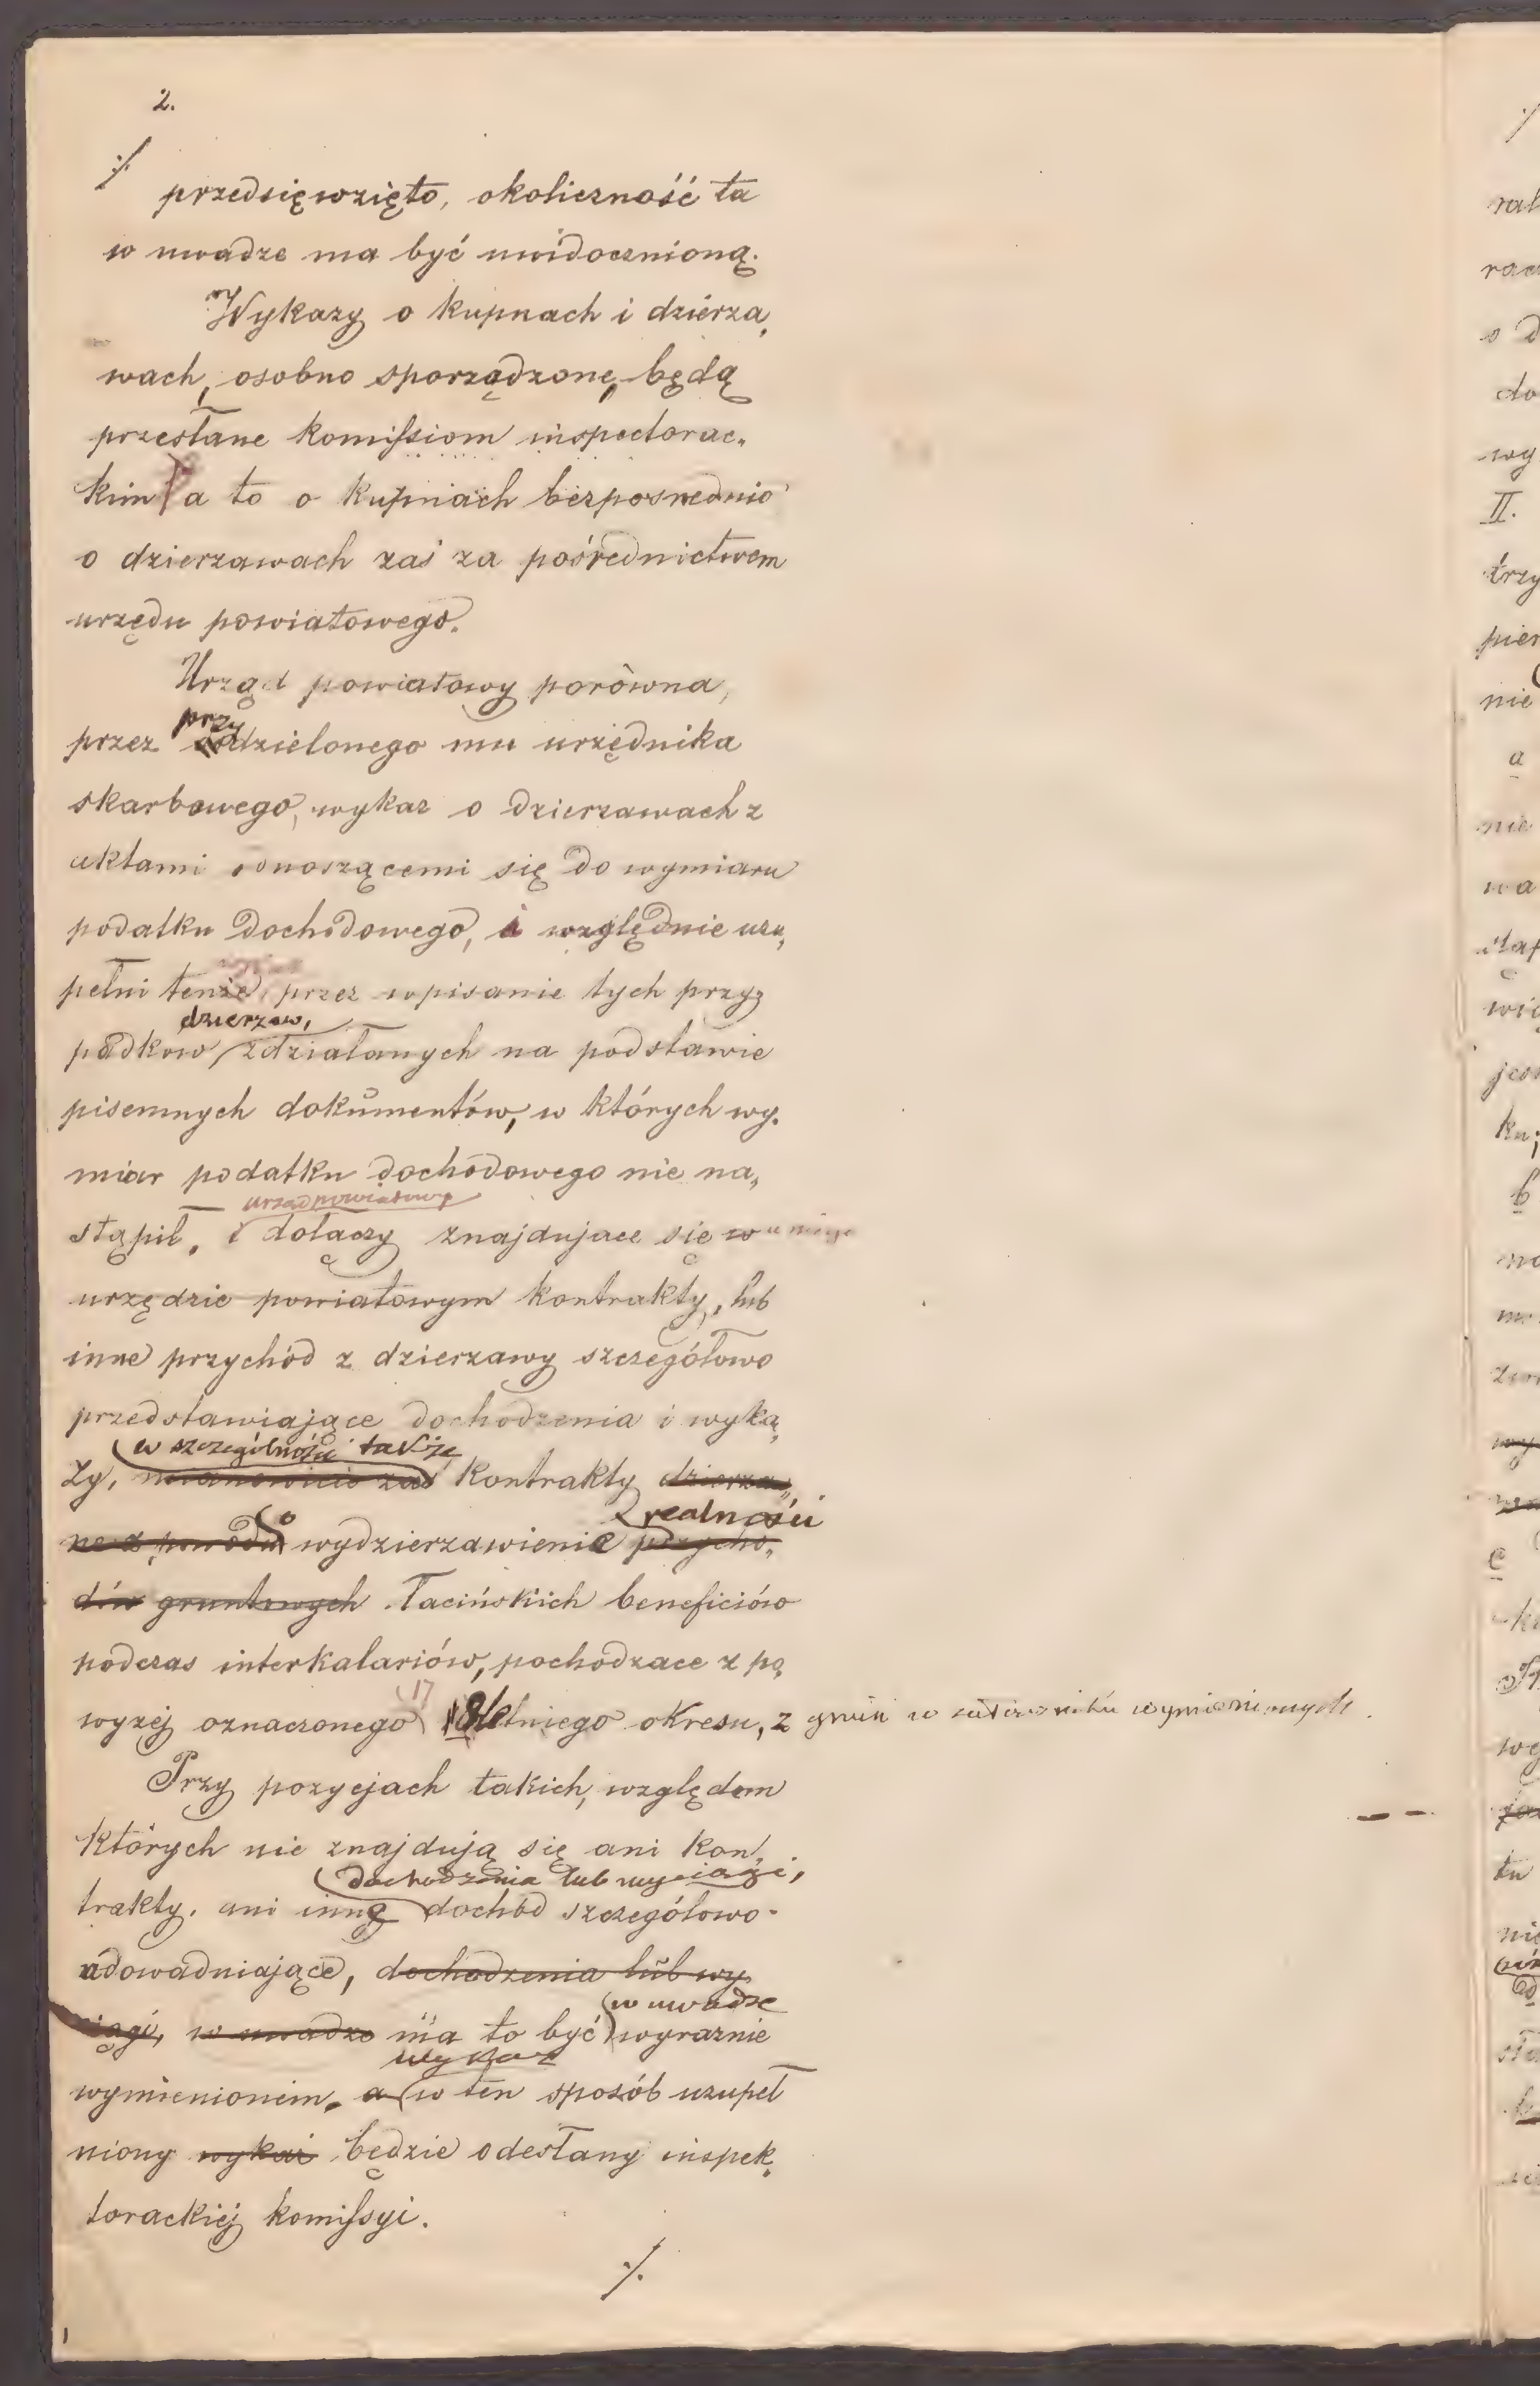 2.
./.
przedsięwzięto, okoliczność ta
w uwadze ma być uwidocznioną.
Wykazy o kupnach i dzierża„
wach, osobno sporządzone, będą
przesłane komissiom inspectorac„
kim a to o kupniach bezposrednio
o dzierzawach zaś za pośrednictwem
urzędu powiatowego.
Urząd powiatowy porówna,
przy
przez oddzielonego mu urzędnika
skarbowego, wykaz o dzierzawach z
aktami odnoszącemi się do wymiaru
podatku dochodowego, i względnie uzu„
pełni tenże, przez wpisanie tych przy„
dzierzaw,
padkow zdziałanych na podstawie
pisemnych dokumentów, w których wy„
miar podatku dochodowego nie na„
urząd powiatowy
stąpił, i dołączy znajdujace się w u niego
urzędzie powiatowym kontrakty, lub
inne przychód z dzierzawy szczegółowo
przedstawiające dochodzenia i wyka„
w szczególności także
ży, mianowicie zaś kontrakty dzierza„
o realności
ne z powodu wydzierzawienie przycho„
dów gruntowych łacińskich beneficiów
podczas interkalariów, pochodzace z po„
17
wyzej oznaczonego 18letniego okresu, z gmin w wymienionych.
Przy pozycjach takich, względem
których nie znajdują się ani kon„
dochodzenia lub wyciągi,
trakty, ani inne dochód szczegółowo
udowadniające, dochodzenia lub wy„
w uwadze
ciągi, w uwadze ma to być wyraznie
wykaz
wymienionem, a w ten sposób uzupeł
niony wykaz będzie odesłany inspek„
torackiej komissyi.
./.